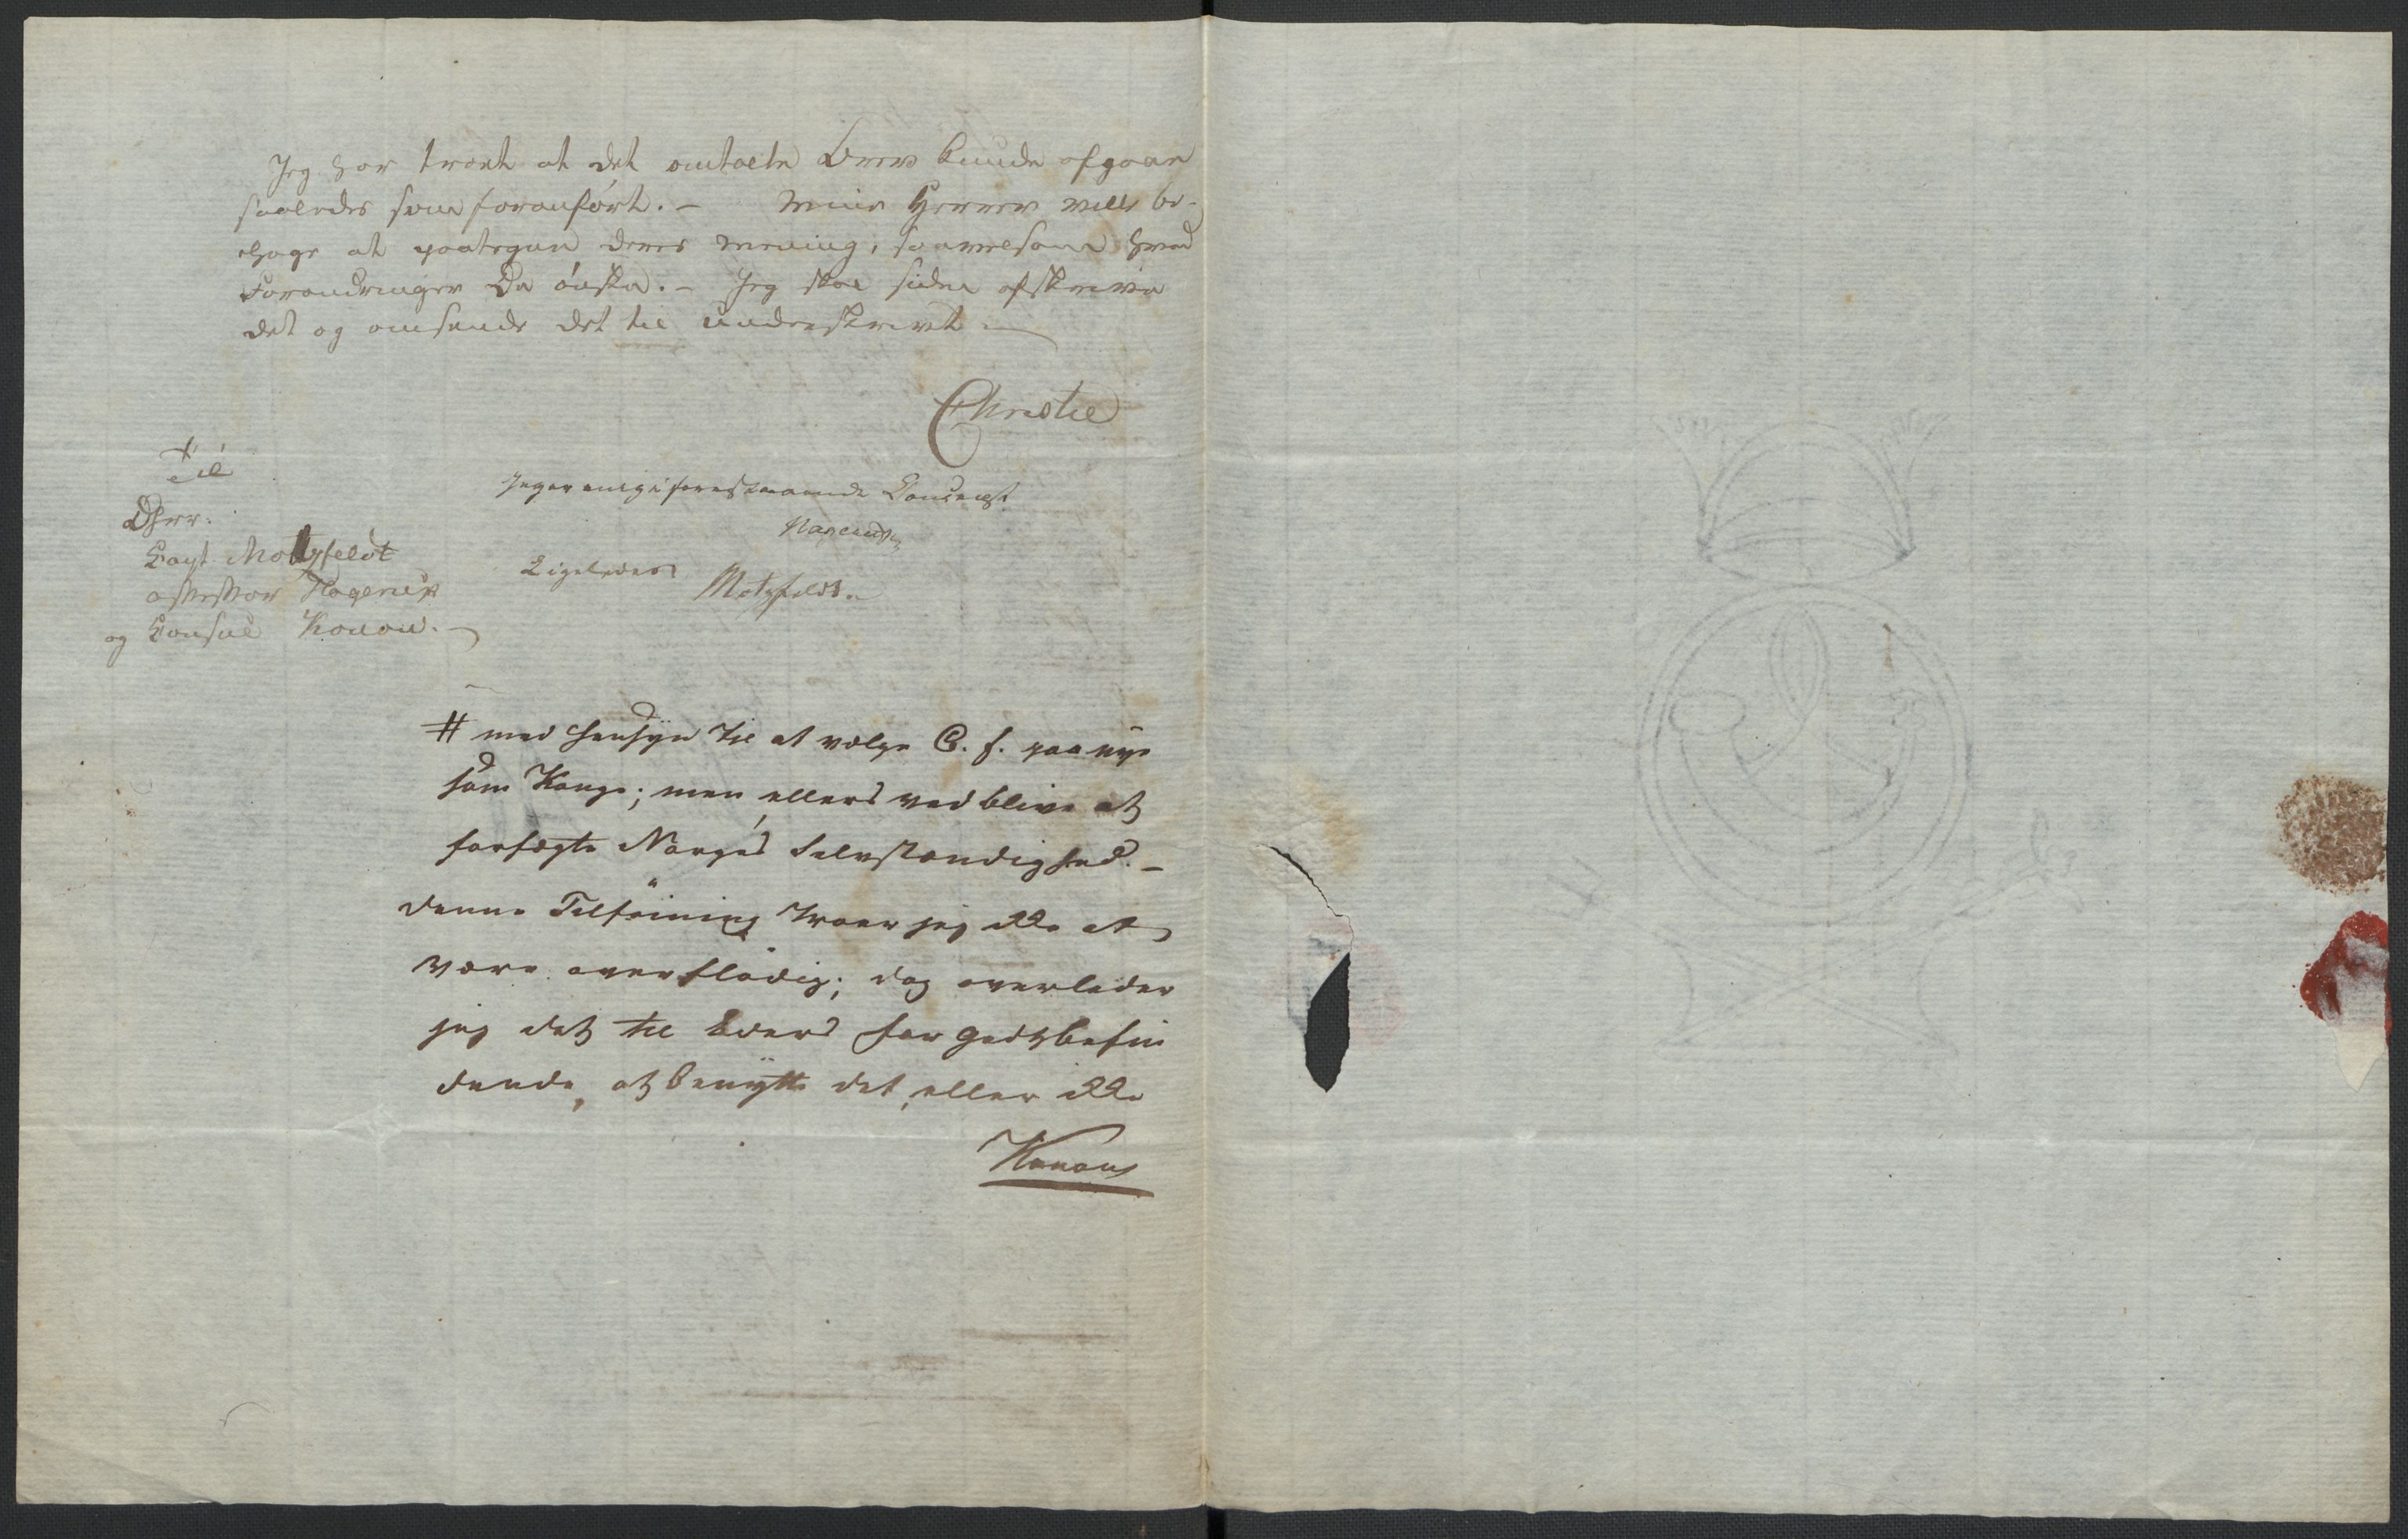 Jeg har troet at det omtalte Brev kunde afgaae
saaledes som foranfört. – Mine Herrer ville be-
hage at paategne deres Mening, saavelsom hvad
Forandringer De önske. – Jeg skal siden afskrive
det og omsende det til Underskrivt
Christie
Til
DHrr.
Capt. Motzfeldt
Assessor Nagerup
og Consul Konow. –
Jeg er enig i forestaaende Concept.
Ligeledes
Motzfeldt.
# med Hensÿn til at vælge C. F. paa nye
som Konge; men ellers vedblive at
forfægte Norges Selvstændighed. –
denne Tilföining troer jeg ikke at
være overflödig; dog overlader
jeg det til Eders for godtbefin
dende, at benÿtte det, eller ikke
Konow